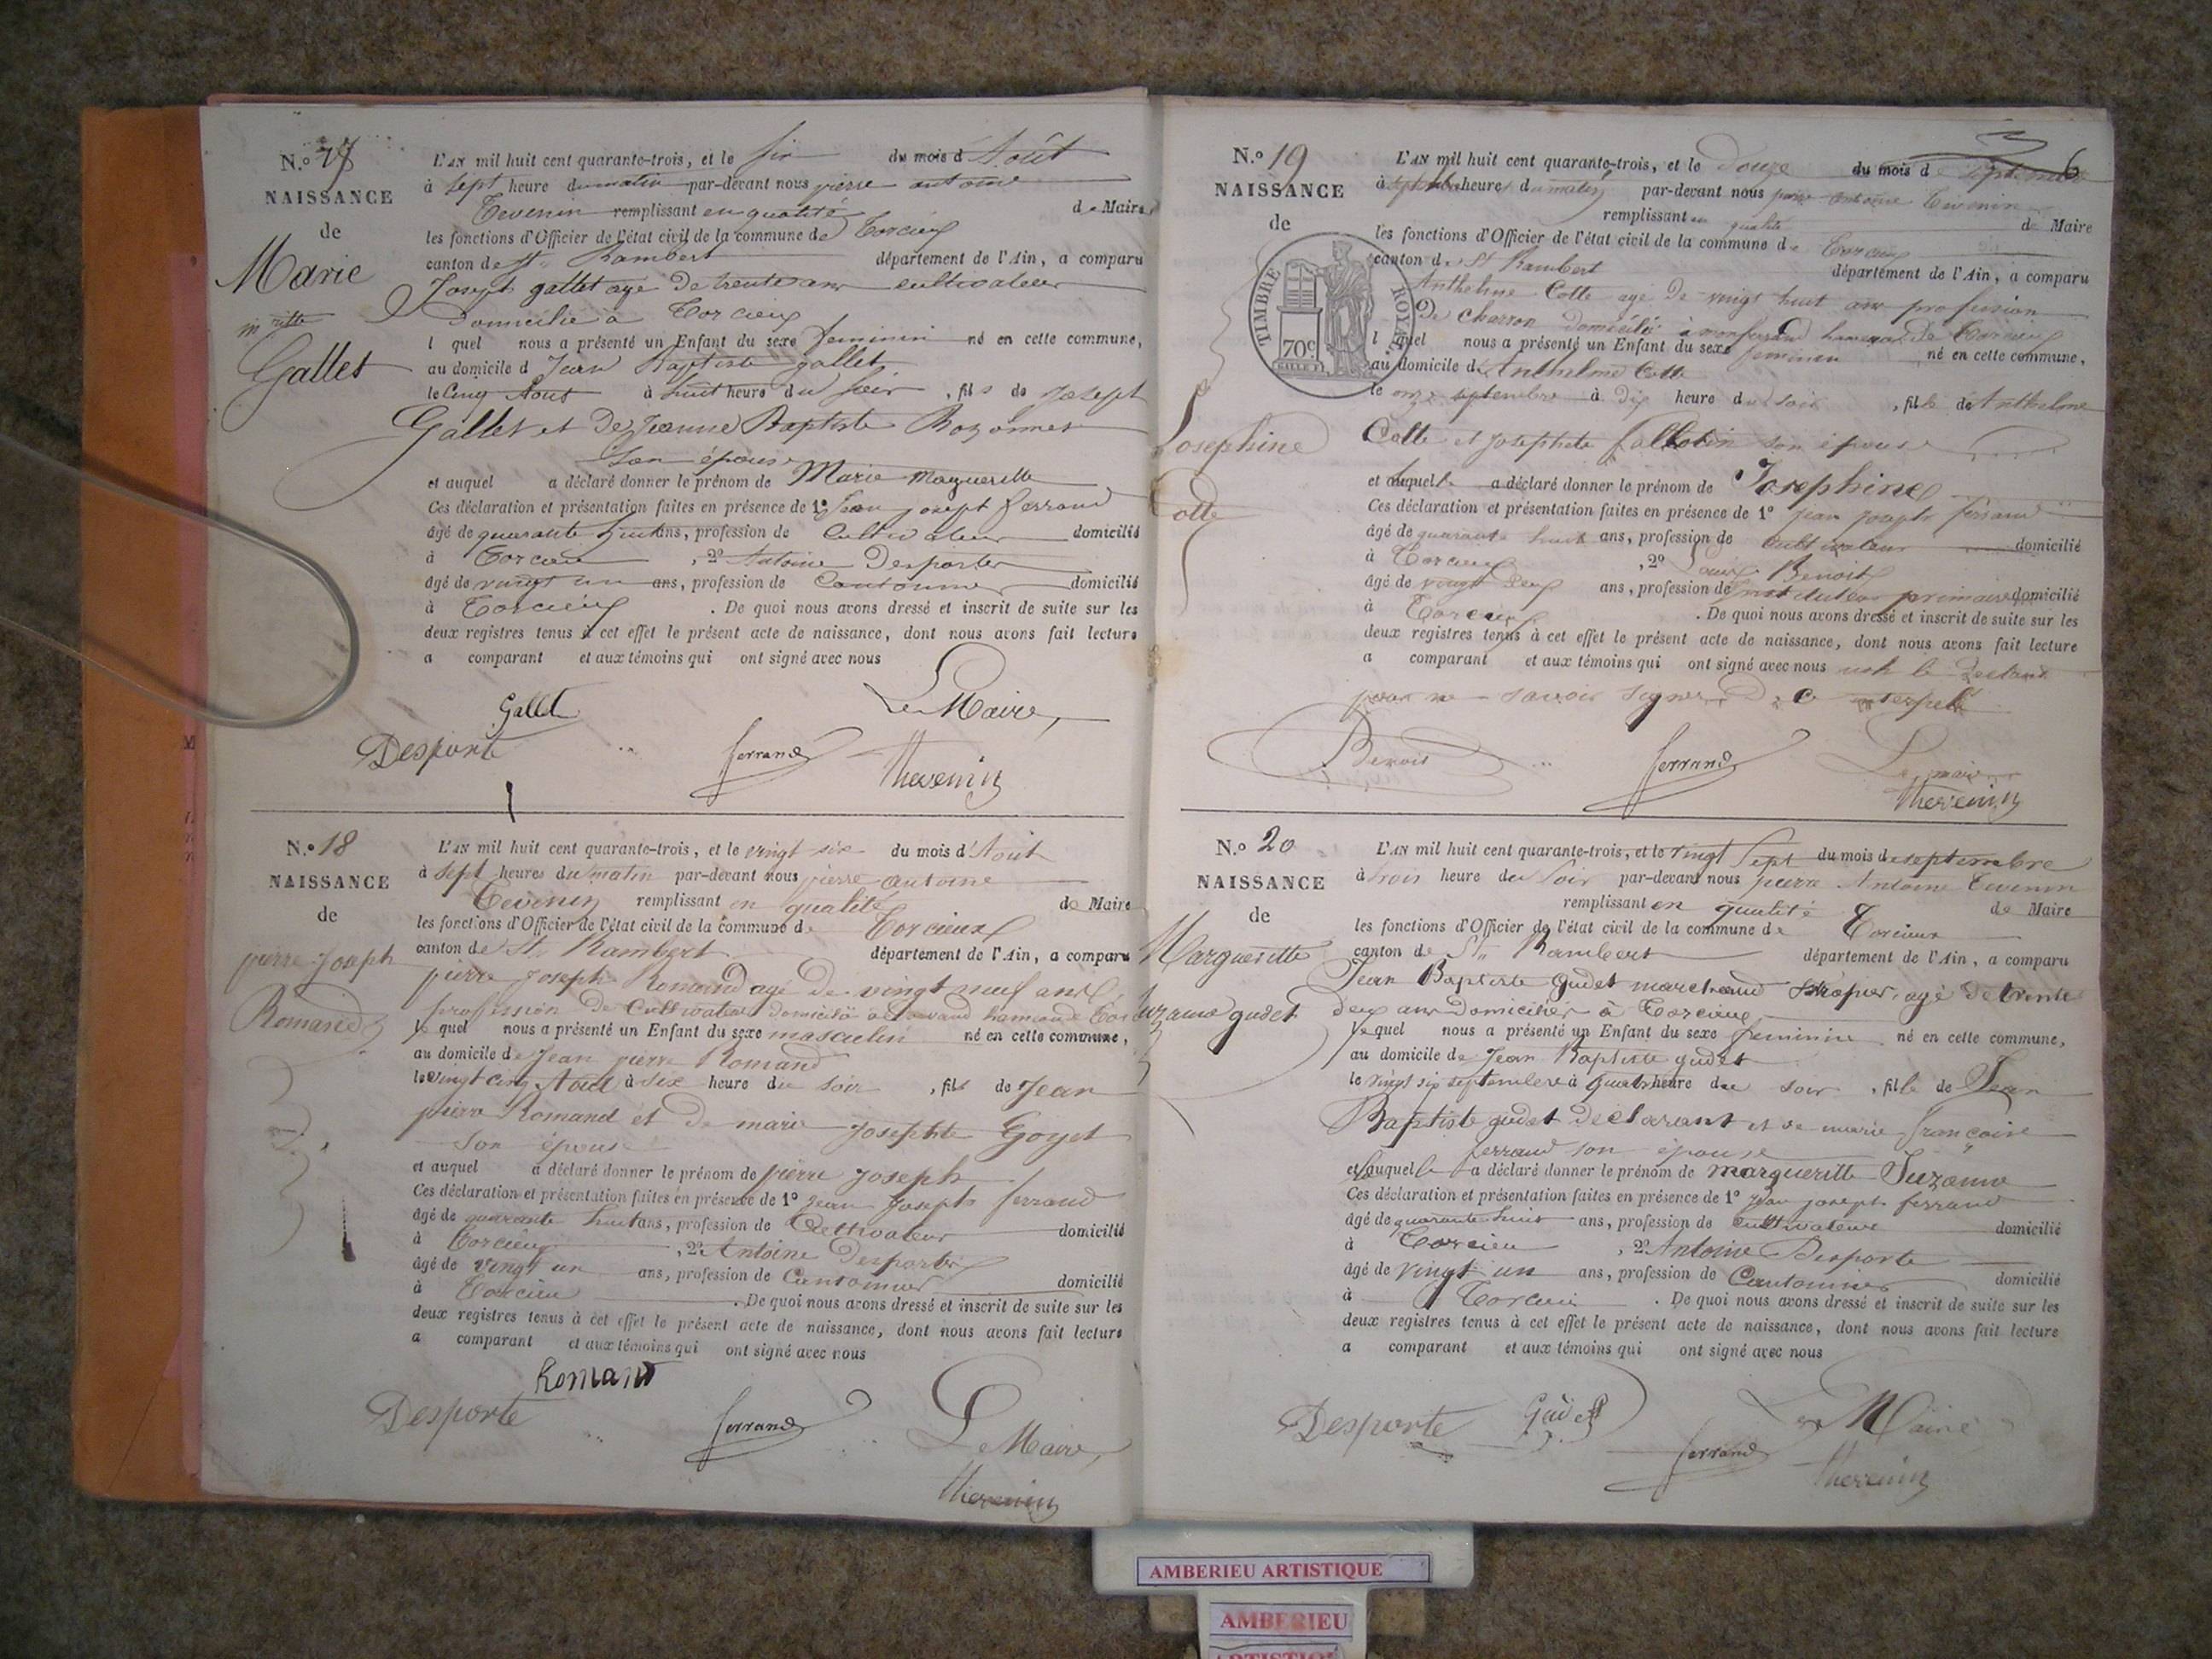 N.o 17
NAISSANCE
de
Marie
m ritte
Gallet
L'AN mil huit cent quarante-trois, et le six du mois d'Août
à sept heure du matin par-devant nous pierre antoine
Tevenin remplissant en qualité de Maire
les fonctions d'Officier de l'état civil de la commune de Torcieu
canton de St. Rambert département de l'Ain, a comparu
Joseph gallet agé de trente ans cultivateur
domicilié à Torcieu
l quel nous a présenté un Enfant du sexe feminin né en cette commune,
au domicile d Jean Baptiste gallet
le Cinq Aout à huit heure du soir, fil de Joseph
Gallet et de Jeanne Baptiste
son épouse
et auquel a déclaré donner le prénom de Marie Marguerite
Ces déclaration et présentation faites en présence de 1º Jean joseph ferrand
âgé de quarante huit ans, profession de Cultivateur domicilié
à Torcieu, 2º Antoine Desporte
âgé de vingt un ans, profession de Cantonnier domicilié
à Torcieu. De quoi nous avons dressé et inscrit de suite sur les
deux registres tenus à cet effet le présent acte de naissance, dont nous avons fait lecture
a comparant et aux témoins qui ont signé avec nous
Gallet Le Maire,
Desporte ferrand Thevenin
N.o 18
NAISSANCE
de
pierre Joseph
Romand
L'AN mil huit cent quarante-trois, et le vingt six du mois d'Août
à sept heures du matin par-devant nous pierre antoine
Tevenin remplissant en qualité de Maire
les fonctions d'Officier de l'état civil de la commune de Torcieux
canton de St. Rambert département de l'Ain, a comparu
pierre Joseph Romand agé de vingt neuf ans
profession de Cultivateur domicilié hameau de
le quel nous a présenté un Enfant du sexe masculin né en cette commune,
au domicile de Jean pierre Romand
le vingt cinq Aout à six heure du soir, fils de Jean
pierre Romand et de marie josephte Goyet
son épouse
et auquel a déclaré donner le prénom de pierre joseph
Ces déclaration et présentation faites en présence de 1º Jean joseph ferrand
âgé de quarante huit ans, profession de Cultivateur domicilié
à Torcieu, 2º Antoine Desporte
âgé de vingt un ans, profession de Cantonnier domicilié
à Torcieu. De quoi nous avons dressé et inscrit de suite sur les
deux registres tenus à cet effet le présent acte de naissance, dont nous avons fait lecture
a comparant et aux témoins qui ont signé avec nous
Romand
Desporte ferrand Le Maire,
Thevenin
6
N.o 19
NAISSANCE
de
TIMBRE ROYAL
70c
Josephine
Cotte
L'AN mil huit cent quarante-trois, et le Douze du mois de septembre
à sept heure du matin par-devant nous pierre antoine Tevenin
remplissant en qualité de Maire
les fonctions d'Officier de l'état civil de la commune de Torcieu
canton de St Rambert département de l'Ain, a comparu
Anthelme Cotte agé de vingt huit ans profession
De charron domicilié à monferrand hameau de Torcieu
l quel nous a présenté un Enfant du sexe feminin né en cette commune,
au domicile d'Anthelme Cotte
le onze septembre à dix heure du soir, fille de Anthelme
Cotte et josephte son épouse
et auquel a déclaré donner le prénom de Josephine
Ces déclaration et présentation faites en présence de 1º jean joseph ferrand
âgé de quarante huit ans, profession de Cultivateur domicilié
à Torcieu, 2º Louis Benoit
âgé de vingt deux ans, profession de instituteur primaire domicilié
à Torcieu. De quoi nous avons dressé et inscrit de suite sur les
deux registres tenus à cet effet le présent acte de naissance, dont nous avons fait lecture
a comparant et aux témoins qui ont signé avec nous
pour ne savoir signer
Benoit ferrand Le maire
Thevenin
N.o 20
NAISSANCE
de
Margueritte
Suzanne gudet
L'AN mil huit cent quarante-trois, et le vingt sept du mois de septembre
à trois heure du soir par-devant nous pierre Antoine Tevenin
remplissant en qualité de Maire
les fonctions d'Officier de l'état civil de la commune de Torcieux
canton de St. Rambert département de l'Ain, a comparu
Jean Baptiste gudet marchand agé de trente
deux ans domicilié à Torcieu
le quel nous a présenté un Enfant du sexe feminin né en cette commune,
au domicile de Jean Baptiste gudet
le vingt six septembre à quatre heure du soir, fille de Jean
Baptiste gudet declarant et de marie françoise
ferrand son épouse
et auquel a déclaré donner le prénom de margueritte Suzanne
Ces déclaration et présentation faites en présence de 1º jean joseph ferrand
âgé de quarante huit ans, profession de cultivateur domicilié
à Torcieu, 2º Antoine Desporte
âgé de vingt un ans, profession de Cantonnier domicilié
à Torcieu. De quoi nous avons dressé et inscrit de suite sur les
deux registres tenus à cet effet le présent acte de naissance, dont nous avons fait lecture
a comparant et aux témoins qui ont signé avec nous
Desporte Gudet Le Maire
ferrand Thevenin
AMBERIEU ARTISTIQUE
AMBERIEU
ARTISTIQUE